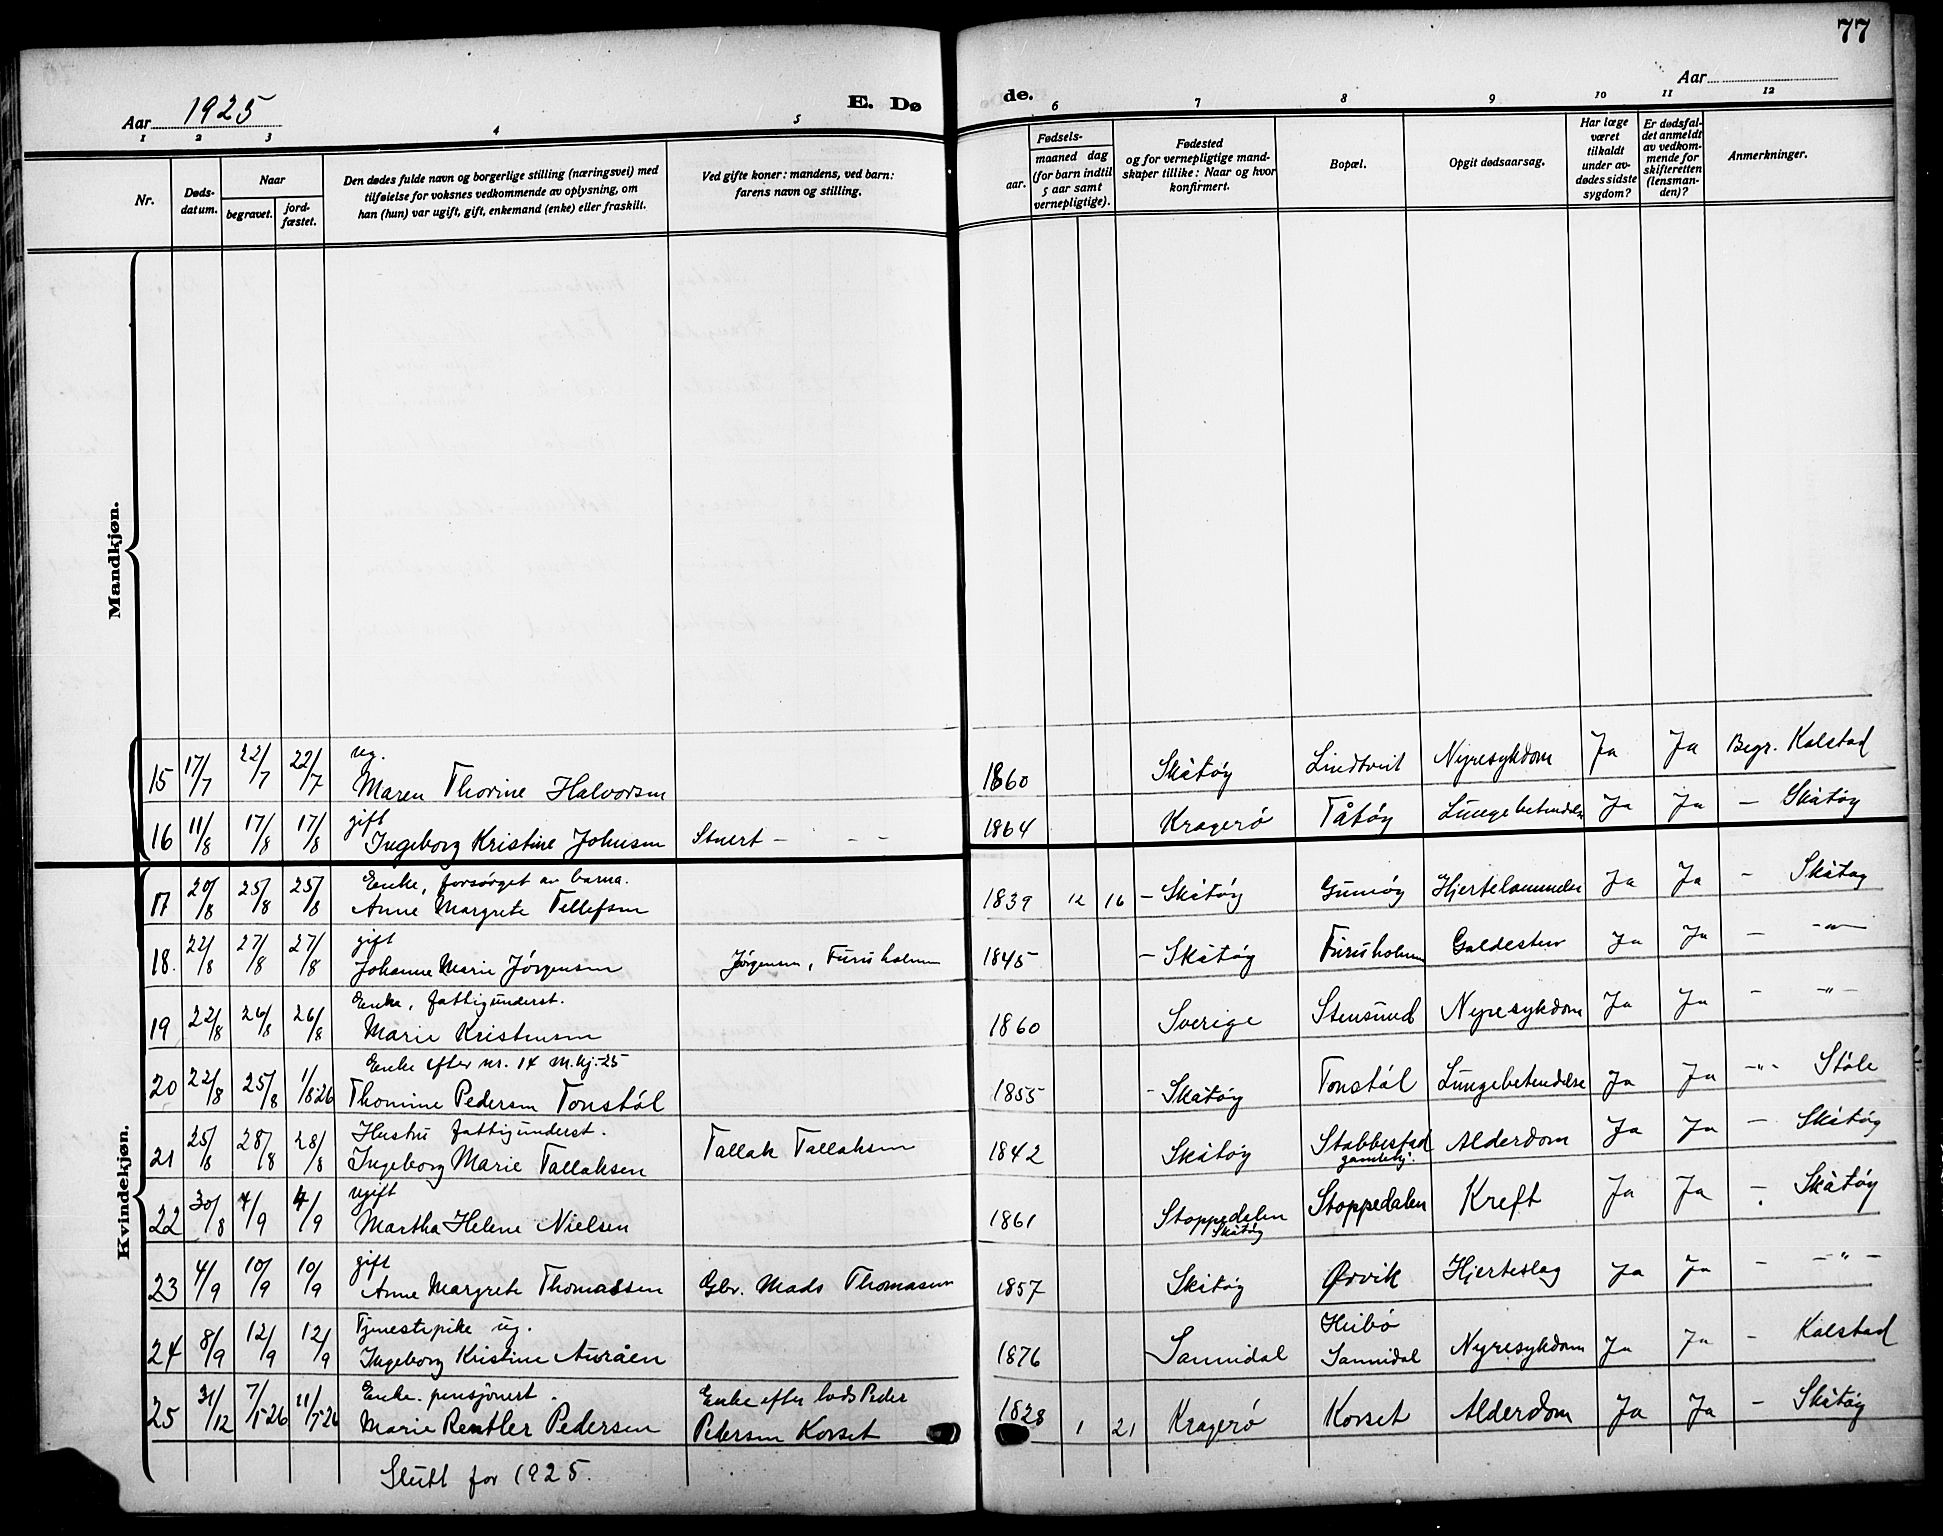 77
Aar 1925
E. Dø
de.
Aar
1 2 3 4 5 6 7 8 9 10 11 12
Nr.
Døds-datum.
Naar
begravet.
jord-fæstet.
Den dødes fulde navn og borgerlige stilling (næringsvei) med
tilføielse for voksnes vedkommende av oplysning, om
han (hun) var ugift, gift, enkemand (enke) eller fraskilt.
Ved gifte koner: mandens, ved barn:
farens navn og stilling.
Fødsels-
aar.
maaned dag
(for barn indtil
5 aar samt
vernepligtige).
Fødested
og for vernepligtige mand-
skaper tillike: Naar og hvor
konfirmert.
Bopæl.
Opgit dødsaarsag.
Har læge
været
tilkaldt
under av-
dødes sidste
sygdom?
Er dødsfal-
det anmeldt
av vedkom-
mende for
skifteretten
(lensman-
den)?
Anmerkninger.
Mandkjøn.
Kvindekjøn.
ug.
15 17/7 22/7 22/7 Maren Thorine Halvorsen 1860 Skåtøy Lindtveit Nyresykdom Ja Ja Begr. Kalstad
gift
16 11/8 17/8 17/8 Ingeborg Kristine Johnsen Stuert - - - 1864 Kragerø Tåtøy Lungebetendelse Ja Ja - Skåtøy
Enke, forsørget av barna.
17 20/8 25/8 25/8 Anne Margrete Tellefsen 1839 12 16 - Skåtøy Gumøy Hjertelammelse Ja Ja - Skåtøy
gift
18. 22/8 27/8 27/8 Johanne Marie Jørgensen Jørgensen, Furuholmen 1845 - Skåtøy Furuholmen Galdesten Ja Ja - -"-
Enke, fattigunderst.
19 22/8 26/8 26/8 Marie Kristensen 1860 Sverige Stensund Nyresykdom Ja Ja - -"-
Enke efter nr. 14 m.kj.-25
20 22/8 25/8 1/8-26 Thomine Pedersen Tonstøl 1855 - Skåtøy Tonstøl Lungebetendelse Ja Ja -"- Støle
Hustru fattigunderst.
21 25/8 28/8 28/8 Ingeborg Marie Tallaksen Tallak Tallaksen 1842 Skåtøy Stabbestad Alderdom Ja Ja - Skåtøy
gamlehj.
ugift
22 30/8 4/9 4/9 Martha Helene Nielsen 1861 Stoppedalen Stoppedalen Kreft Ja Ja - Skåtøy
Skåtøy
gift
23 4/9 10/9 10/9 Anne Margrete Thomassen Gbr. Mads Thomassen 1857 Skåtøy Ørvik Hjerteslag Ja Ja - -"-
Tjenestepike ug. Heibø
24 8/9 12/9 12/9 Ingeborg Kristine Auråen 1876 Sannidal Sannidal Nyresykdom Ja Ja - Kalstad
Enke. pensjonert. Enke efter lods Peder
25 31/12 7/1-26 11/7-26 Marie Rentler Pedersen Pedersen Korset 1828 1 21 Kragerø Korset Alderdom Ja Ja - Skåtøy
Slutt for 1925.